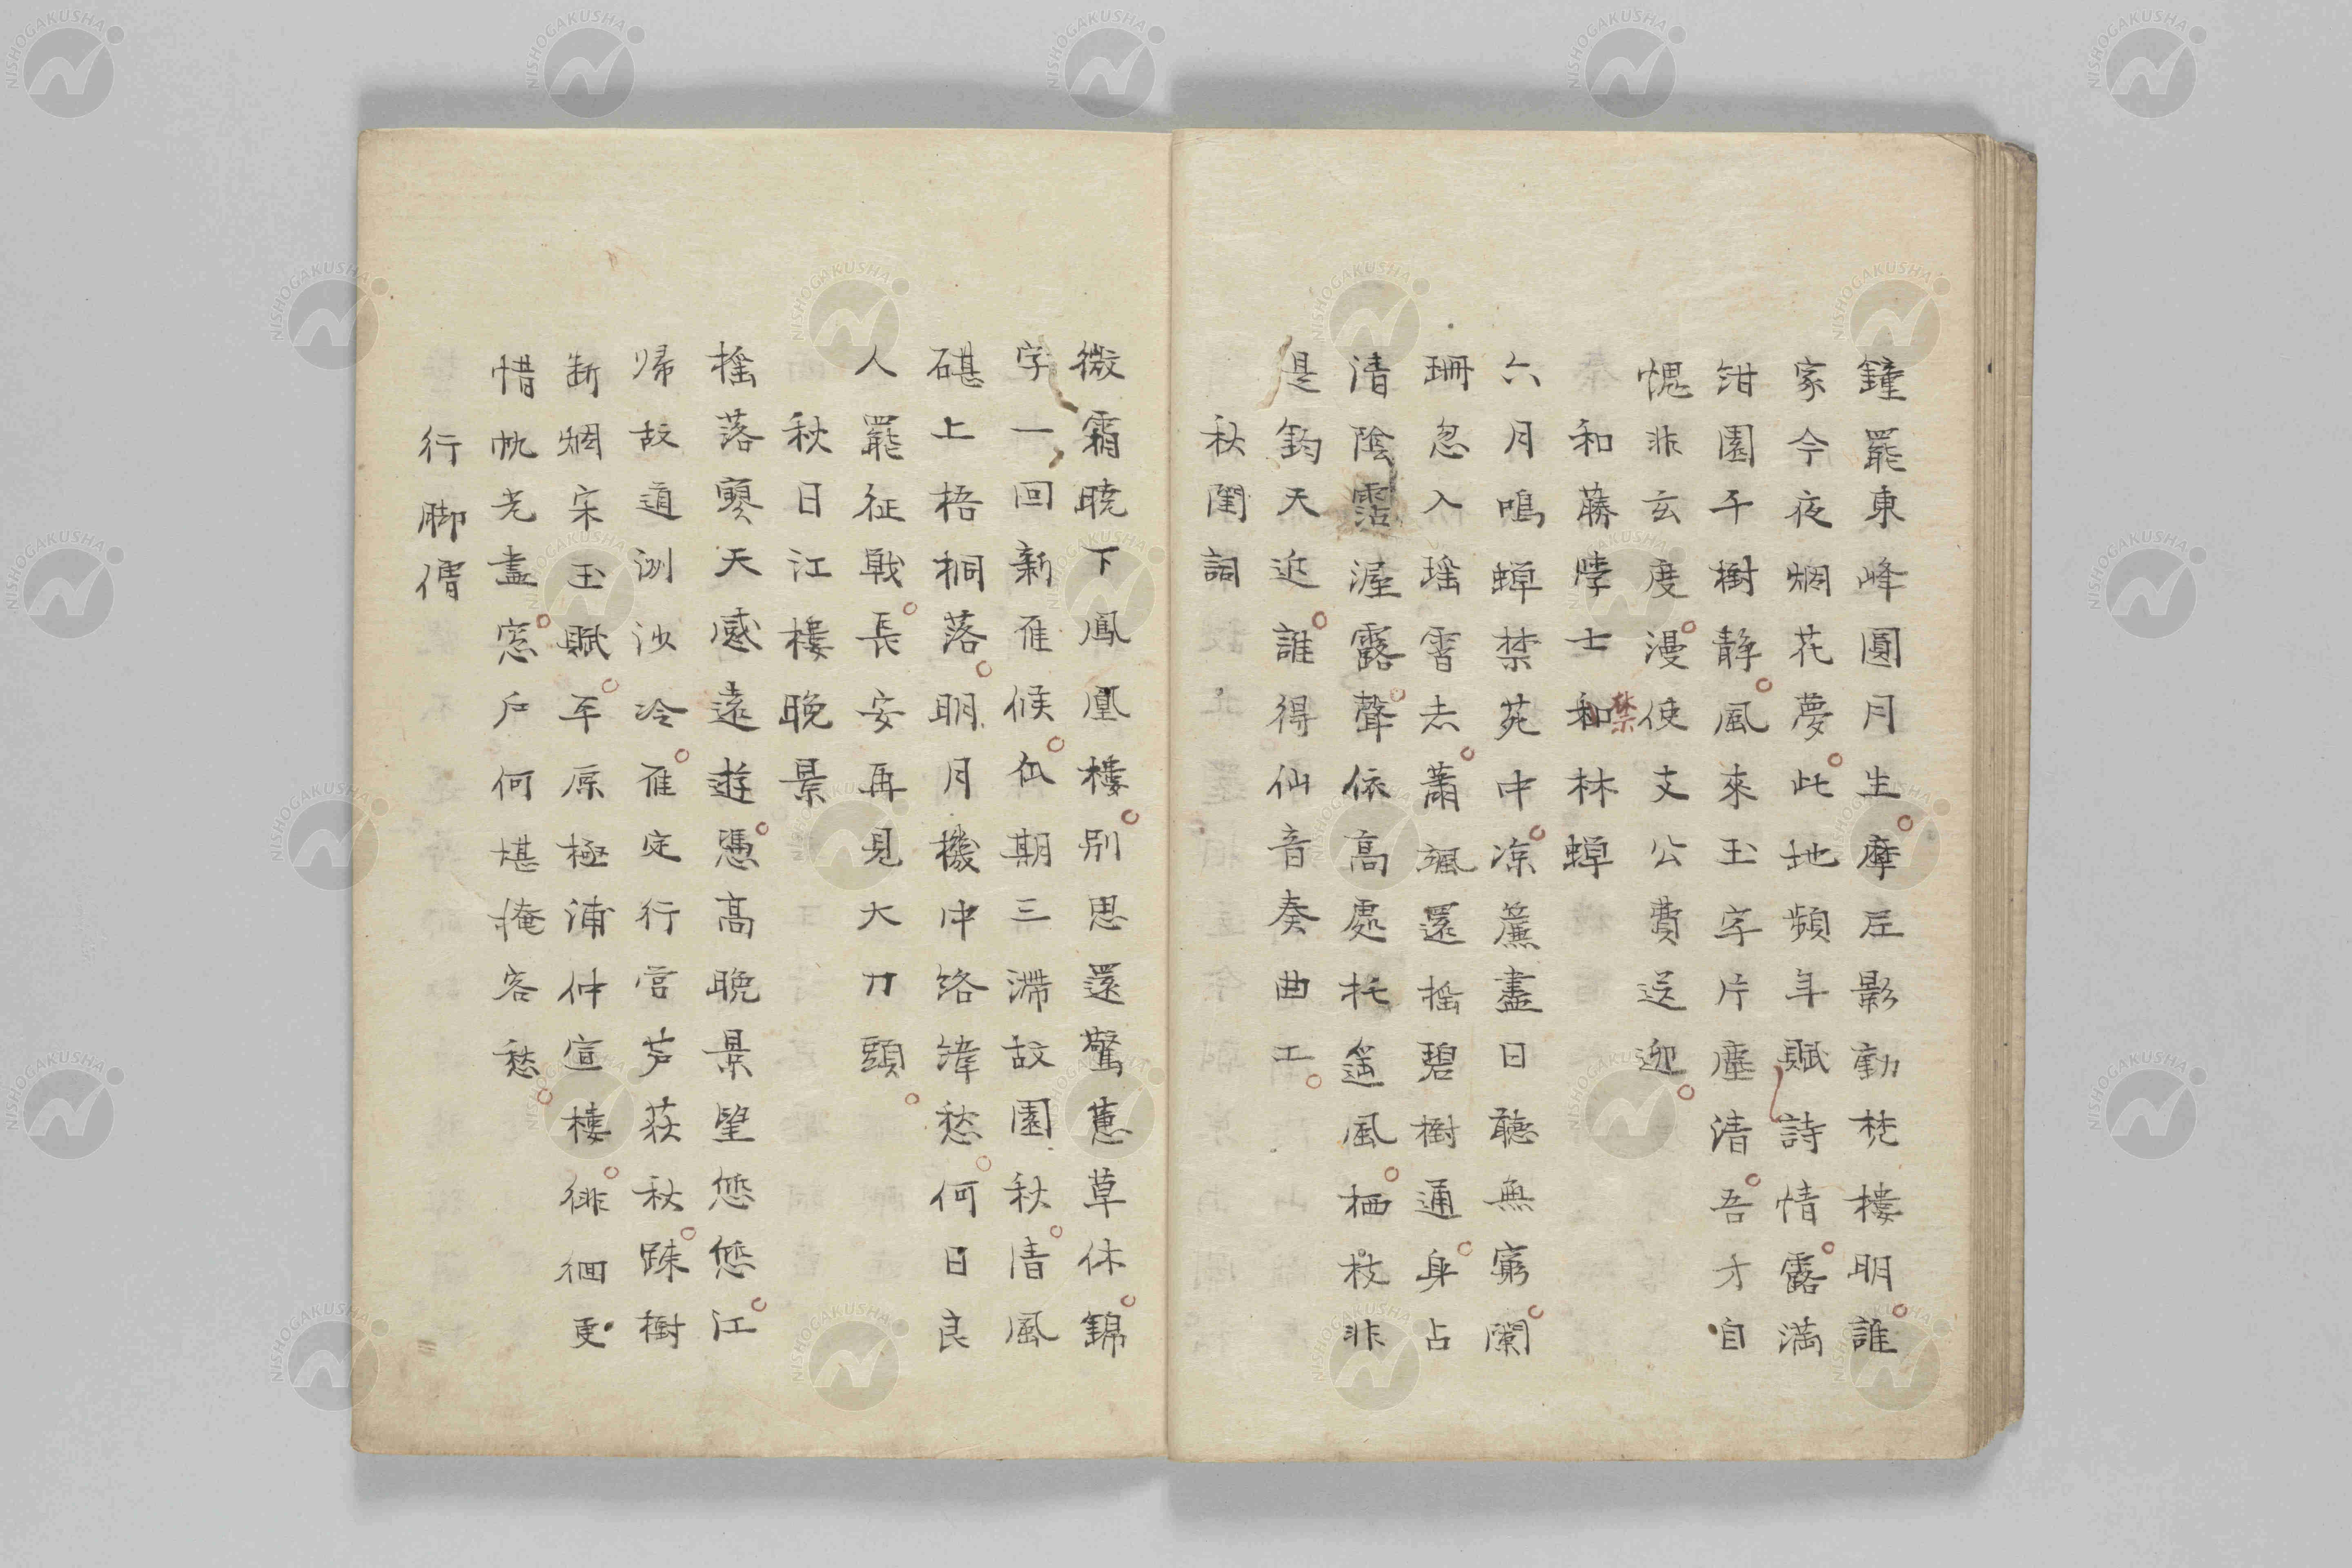 鐘罷東峰圓月生摩尼影動梵樓明誰
家今夜烟花夢此地頻年賦詩情露滿
紺園千樹靜風來玉宇片塵清吾才自
愧非玄度漫使支公費送迎
和蕣學士和林蟬
禁
六月鳴蟬禁苑中凉簾盡日聽無窮闌
珊忽入瑤霄去蕭颯還搖碧樹通身占
清陰霑渥露聲依高處托遙風栖枝非
是鈞天近誰得仙音奏曲工
秋閨詞
微霜曉下鳳凰樓別思還驚蕙草休錦
字一回新雁候瓜期三滯故園秋清風
碪上梧桐落明月機中絡緯愁何日良
人罷征戰長安再見大刀頭
秋日江樓晚景
搖落寥天感遠遊憑高晚景望悠悠江
帰故道洲沙冷雁定行宮芦荻秋踈樹
断烟宋玉賦平原極浦仲宣樓徘徊更
惜帆光盡窓戶何堪掩客愁
行脚僧